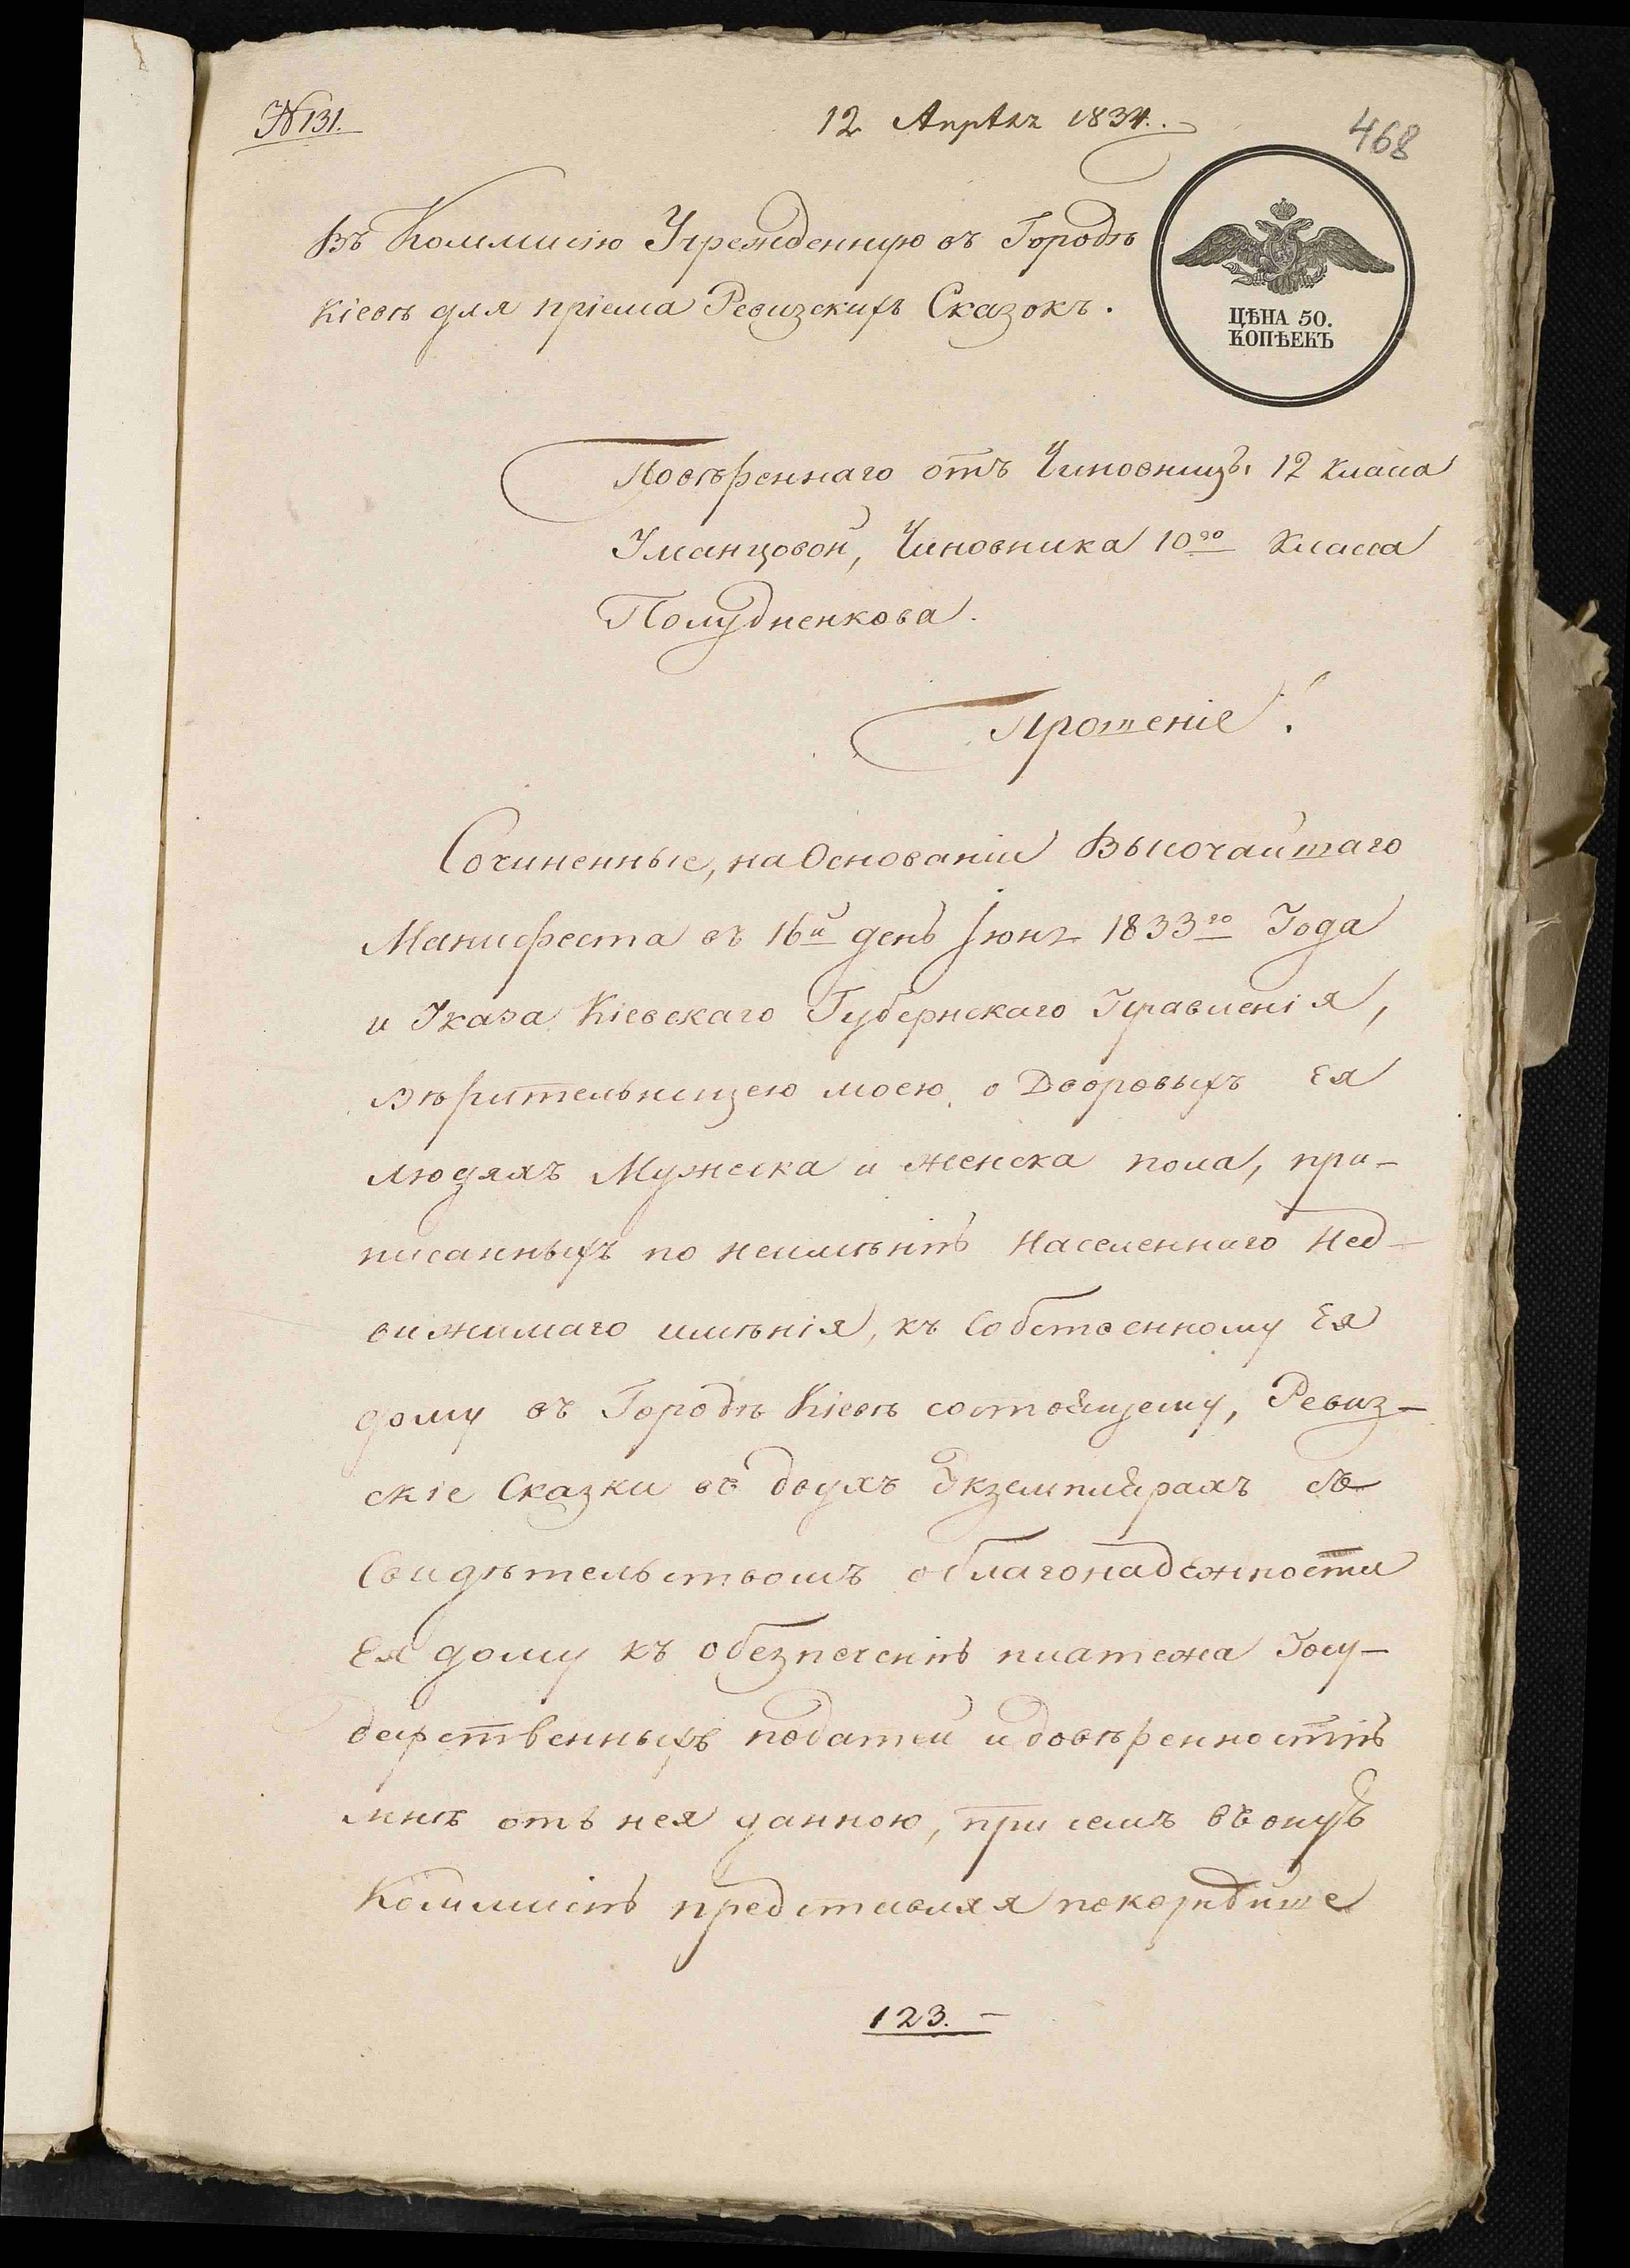 № 131.
12 Апрѣля 1834.
468
Въ Коммисію Учрежденную въ Городѣ
Кіевѣ для пріема Ревизскихъ Сказокъ.
ЦѢНА 50.
КОПѢЕКЪ
Повѣреннаго отъ Чиновницы 12 класса
Уманцовой, Чиновника 10го Класса
Полудненкова.
Прошеніе.
Сочиненные, на Основаніи Высочайшаго
Манифеста въ 16й день Іюня 1833го Года
и Указа Кіевскаго Губернскаго Правленія,
вѣрительницею моею о Дворовыхъ Ея
людяхъ Мужеска и женска пола, при-
писанныхъ по неимѣнію Населеннаго Нед-
вижимаго имѣнія, къ Собственному Ея
дому въ Городѣ Кіевѣ состоящему, Ревиз-
скіе Сказки въ двухъ Экземплярахъ съ
Свидѣтельствомъ облагонадежности
Ея дому къ обезпеченію платежа Госу-
дарственныхъ податей и довѣренностію
мнѣ отъ нея данною, при семъ въ оную
Коммисію представляя покорнѣйше
123.